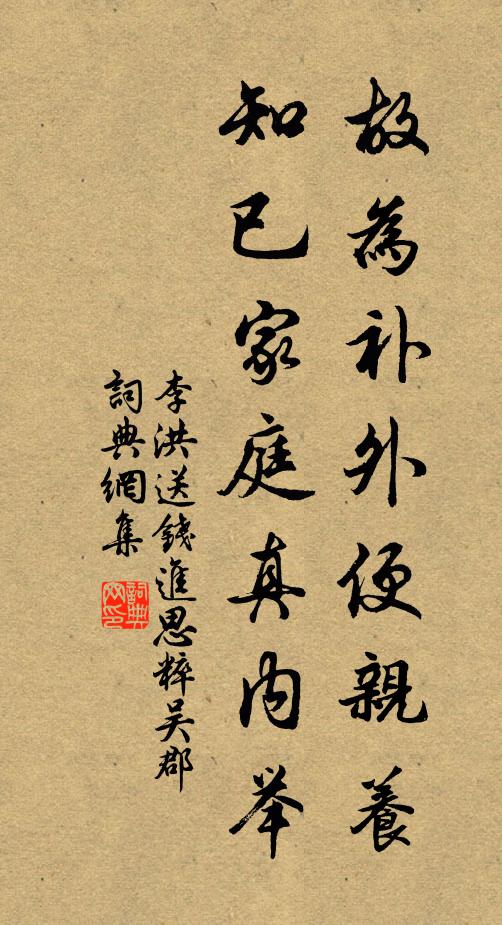 故為补外便親養
知已家庭真内举
李洪送錢進思粹吴郡
詞典網集
詞典网印